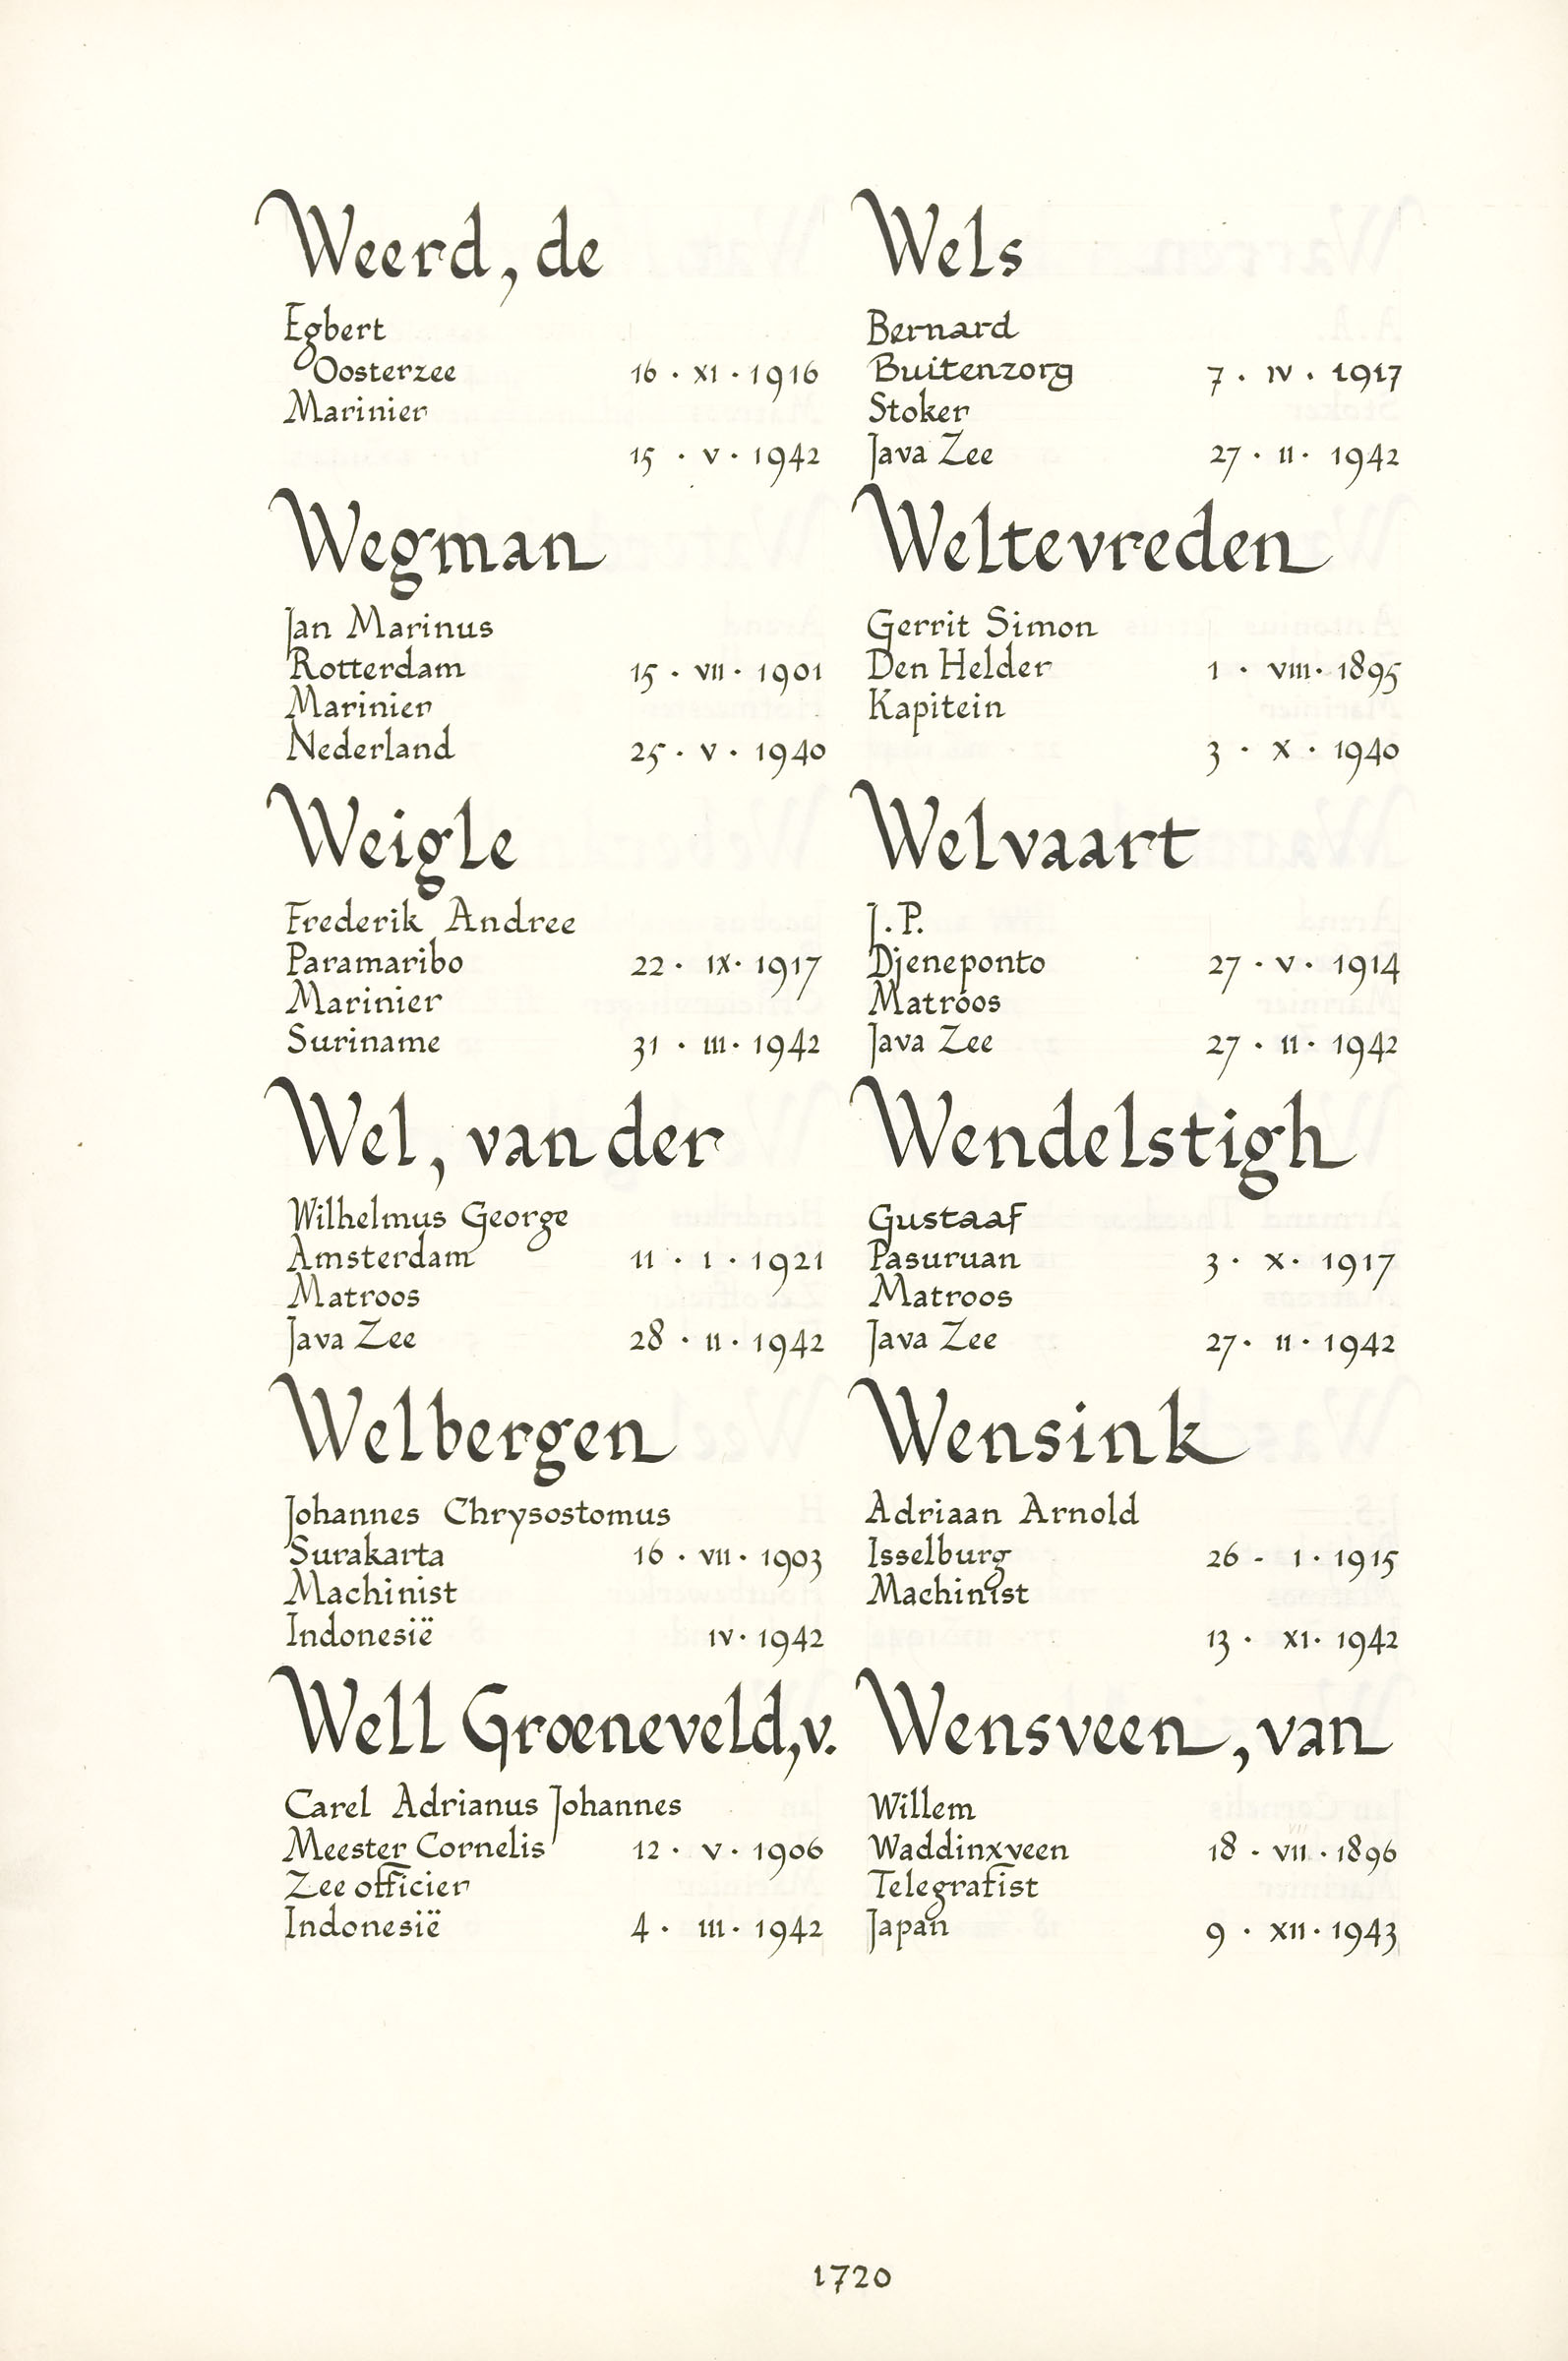 Weerd, de
Egbert
Oosterzee 16 · XI · 1916
Marinier
15 · V · 1942
Wegman
Jan Marinus
Rotterdam 15 · VII · 1901
Marinier
Nederland 25 · V · 1940
Weigle
Frederik Andree
Paramaribo 22 · IX · 1917
Marinier
Suriname 31 · III · 1942
Wel, van der
Wilhelmus George
Amsterdam 11 · I · 1921
Matroos
Java Zee 28 · II · 1942
Welbergen
Johannes Chrysostomus
Surakarta 16 · VII · 1903
Machinist
Indonesië IV · 1942
Well Groeneveld, v.
Carel Adrianus Johannes
Meester Cornelis 12 · V · 1906
Zee officier
Indonesië 4 · III · 1942
Wels
Bernard
Buitenzorg 7 · IV · 1917
Stoker
Java Zee 27 · II · 1942
Weltevreden
Gerrit Simon
Den Helder 1 · VIII · 1895
Kapitein
3 · X · 1940
Welvaart
J. P.
Djeneponto 27 · V · 1914
Matroos
Java Zee 27 · II · 1942
Wendelstigh
Gustaaf
Pasuruan 3 · X · 1917
Matroos
Java Zee 27 · II · 1942
Wensink
Adriaan Arnold
Isselburg 26 - I · 1915
Machinist
13 · XI · 1942
Wensveen, van
Willem
Waddinxveen 18 · VII · 1896
Telegrafist
Japan 9 · XII · 1943
1720